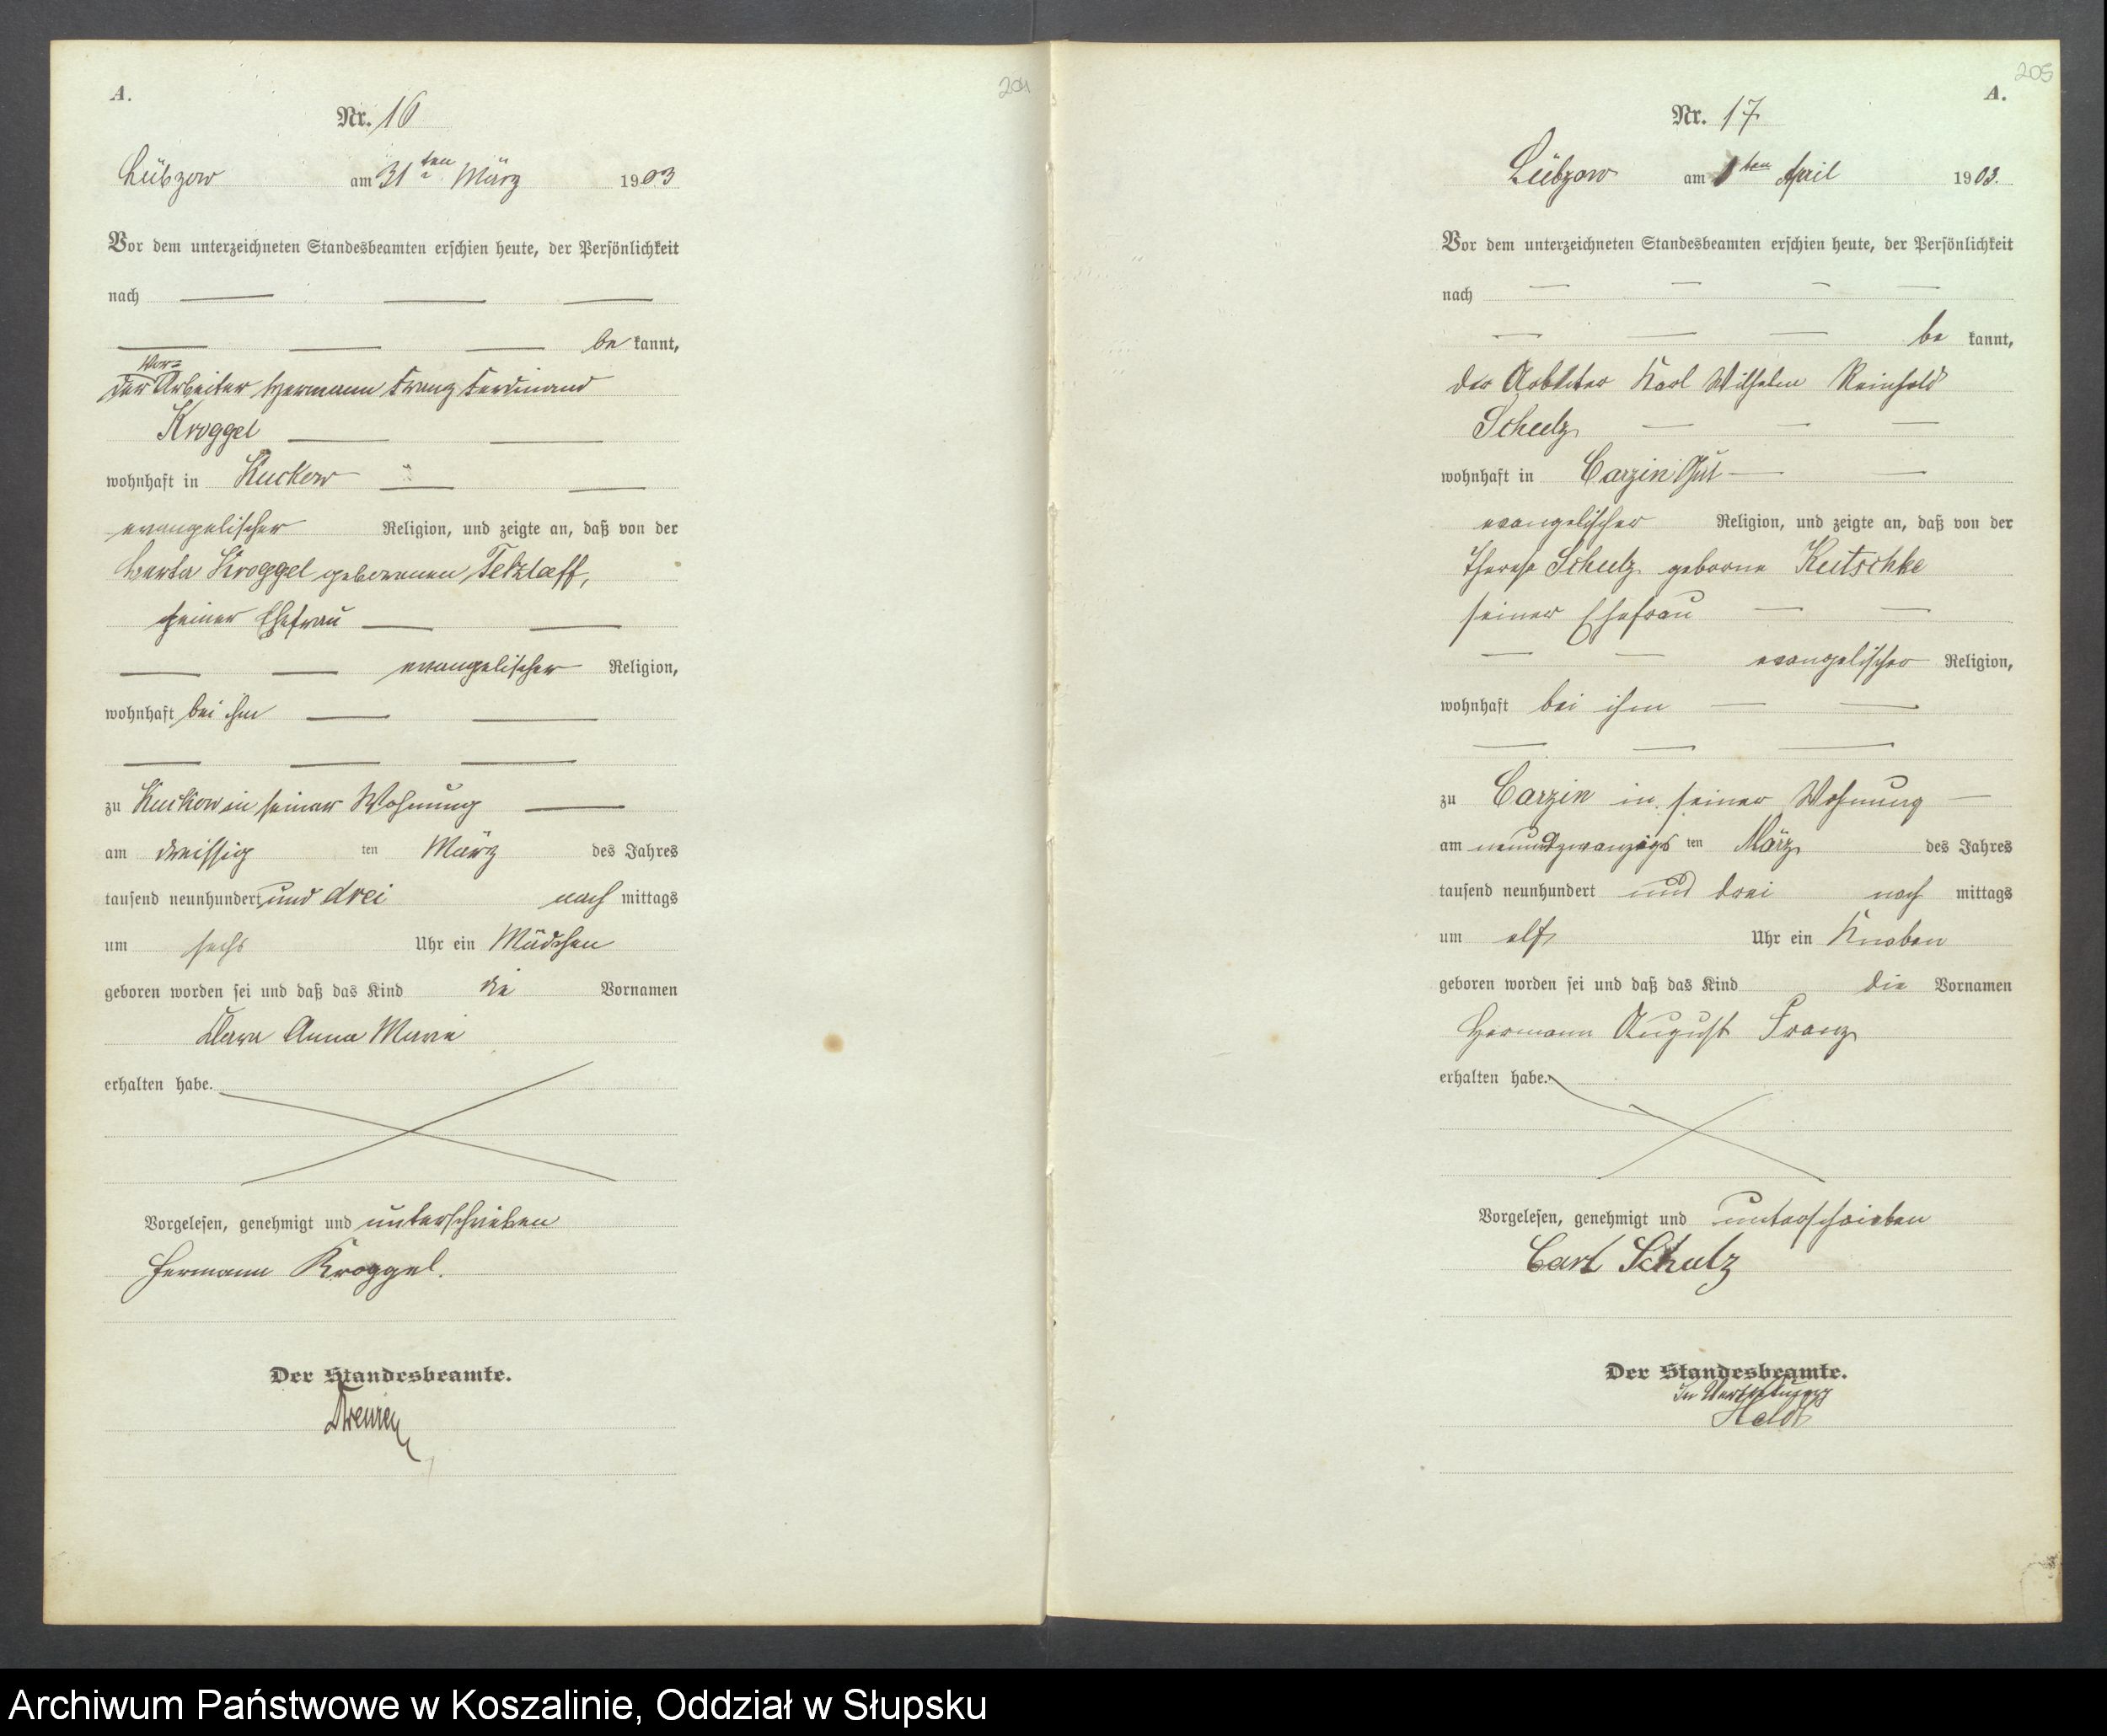 204
A.
Nr. 16
Lübzow am 31ten März 1903
Vor dem unterzeichneten Standesbeamten erschien heute, der Persönlichkeit
nach
be kannt,
Vor=
der Arbeiter Hermann Franz Ferdinand
Kroggel
wohnhaft in Kuckow
evangelischer Religion, und zeigte an, daß von der
Kroggel geborenen Tetzlaff,
seiner Ehefrau
evangelischer Religion,
wohnhaft bei ihm
zu Kuckow in seiner Wohnung
am dreissig ten März des Jahres
tausend neunhundert und drei nach mittags
um sechs Uhr ein Mädchen
geboren worden sei und daß das Kind die Vornamen
Klara Anna Marie
erhalten habe.
Vorgelesen, genehmigt und unterschrieben
Hermann Kroggel.
Der Standesbeamte.
205
A.
Nr. 17
Lübzow am 1ten April 1903.
Vor dem unterzeichneten Standesbeamten erschien heute, der Persönlichkeit
nach
be kannt,
der Arbeiter Karl Wilhelm Reinhold
Schulz
wohnhaft in Carzin Gut
evangelischer Religion, und zeigte an, daß von der
Therese Schulz geborne Kutschke
seiner Ehefrau
evangelischer Religion,
wohnhaft bei ihm
zu Carzin in seiner Wohnung
am neunundzwanzigs ten März des Jahres
tausend neunhundert und drei nach mittags
um elf Uhr ein Knaben
geboren worden sei und daß das Kind die Vornamen
Hermann August Franz
erhalten habe.
Vorgelesen, genehmigt und unterschrieben
Carl Schulz
Der Standesbeamte.
In Vertretung
Heldt
Archiwum Państwowe w Koszalinie, Oddział w Słupsku